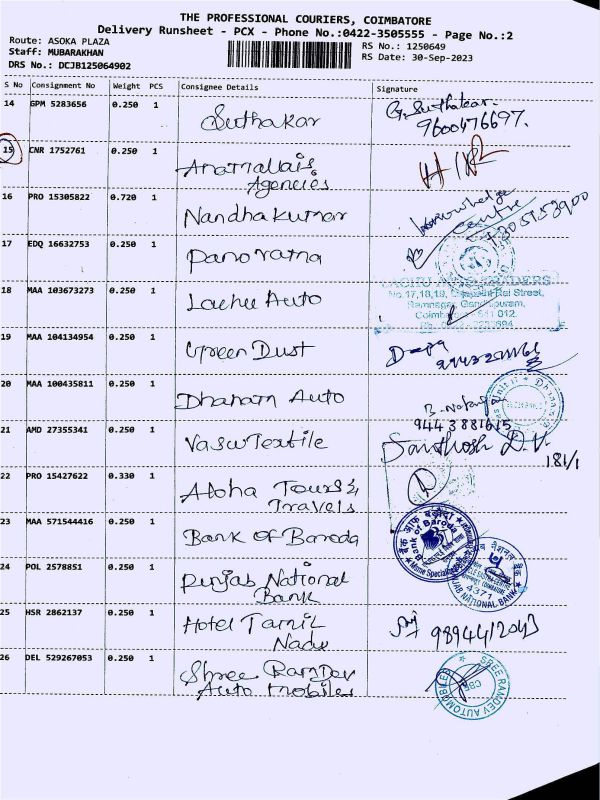 THE PROFESSIONAL COURIERS, COIMBATORE
Delivery Runsheet - PCX - Phone No.:0422-3505555 - Page No.:2
Route: ASOKA PLAZA
RS No.: 1250649
Staff: MUBARAKHAN
RS Date: 30-Sep-2023
DRS No.: DCJB125064902
S No Consignment No Weight PCS Consignee Details Signature
14 GPM 5283656 0.250 1 Suthakar G. Suthakar.
9600476697.
15 CNR 1752761 0.250 1 Anamallais
Agencies
16 PRO 15305822 0.720 1 Nandha kumar
Centre
17 EDQ 16632753 0.250 1 Panoratna
18 MAA 103673273 0.250 1 Lachu Auto
No.17,18,19,
Ramnagar, Gandhipuram,
19 MAA 104134954 0.250 1 Green Dust
20 MAA 100435811 0.250 1 Dhanam Auto
9443881615
21 AMD 27355341 0.250 1 Vasu Textile Santhosh D.V.
181/1
22 PRO 15427622 0.330 1 Aloha Tours &
Travels
23 MAA 571544416 0.250 1 Bank of Baroda
बैंक ऑफ बड़ौदा
Bank of Baroda
24 POL 2578851 0.250 1 Punjab National
Bank
4371
NATIONAL BANK
25 HSR 2862137 0.250 1 Hotel Tamil
Nadu
26 DEL 529267053 0.250 1 Shree RamDev
Auto mobiles
SREE RAMDEV AUTOMOBILES
CBE